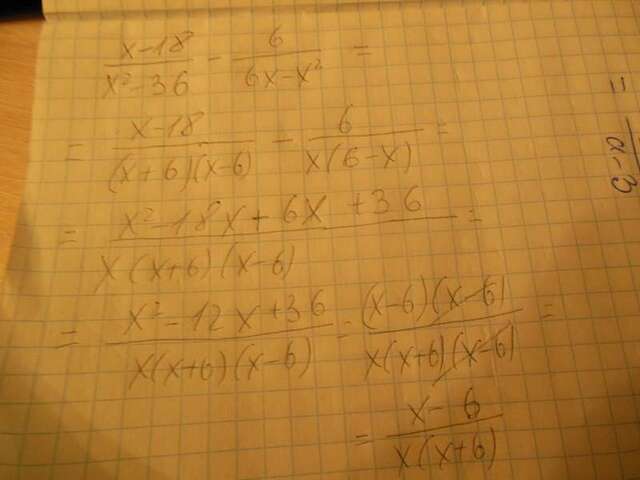 x-18/x²-36 - 6/6x-x² =
= x-18/(x+6)(x-6) - 6/x(6-x) =
= x²-18x+6x+36/x(x+6)(x-6) =
= x²-12x+36/x(x+6)(x-6) = (x-6)(x-6)/x(x+6)(x-6) =
= x-6/x(x+6)
= /a-3